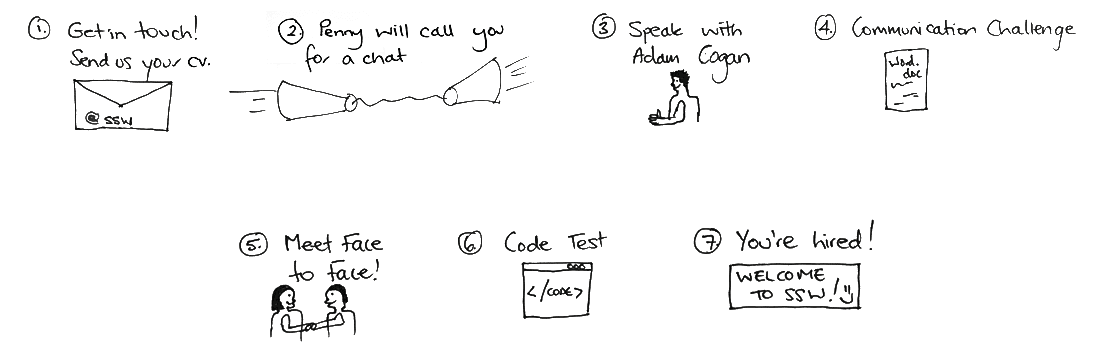 1. Get in touch!
Send us your cv.
@ SSW
2 Penny will call you
for a chat
3 Speak with
Adam Cogan
4. Communication Challenge
Word.
doc
5. Meet Face
to Face!
6. Code Test
</CODE>
7 You're hired!
WELCOME
TO SSW!